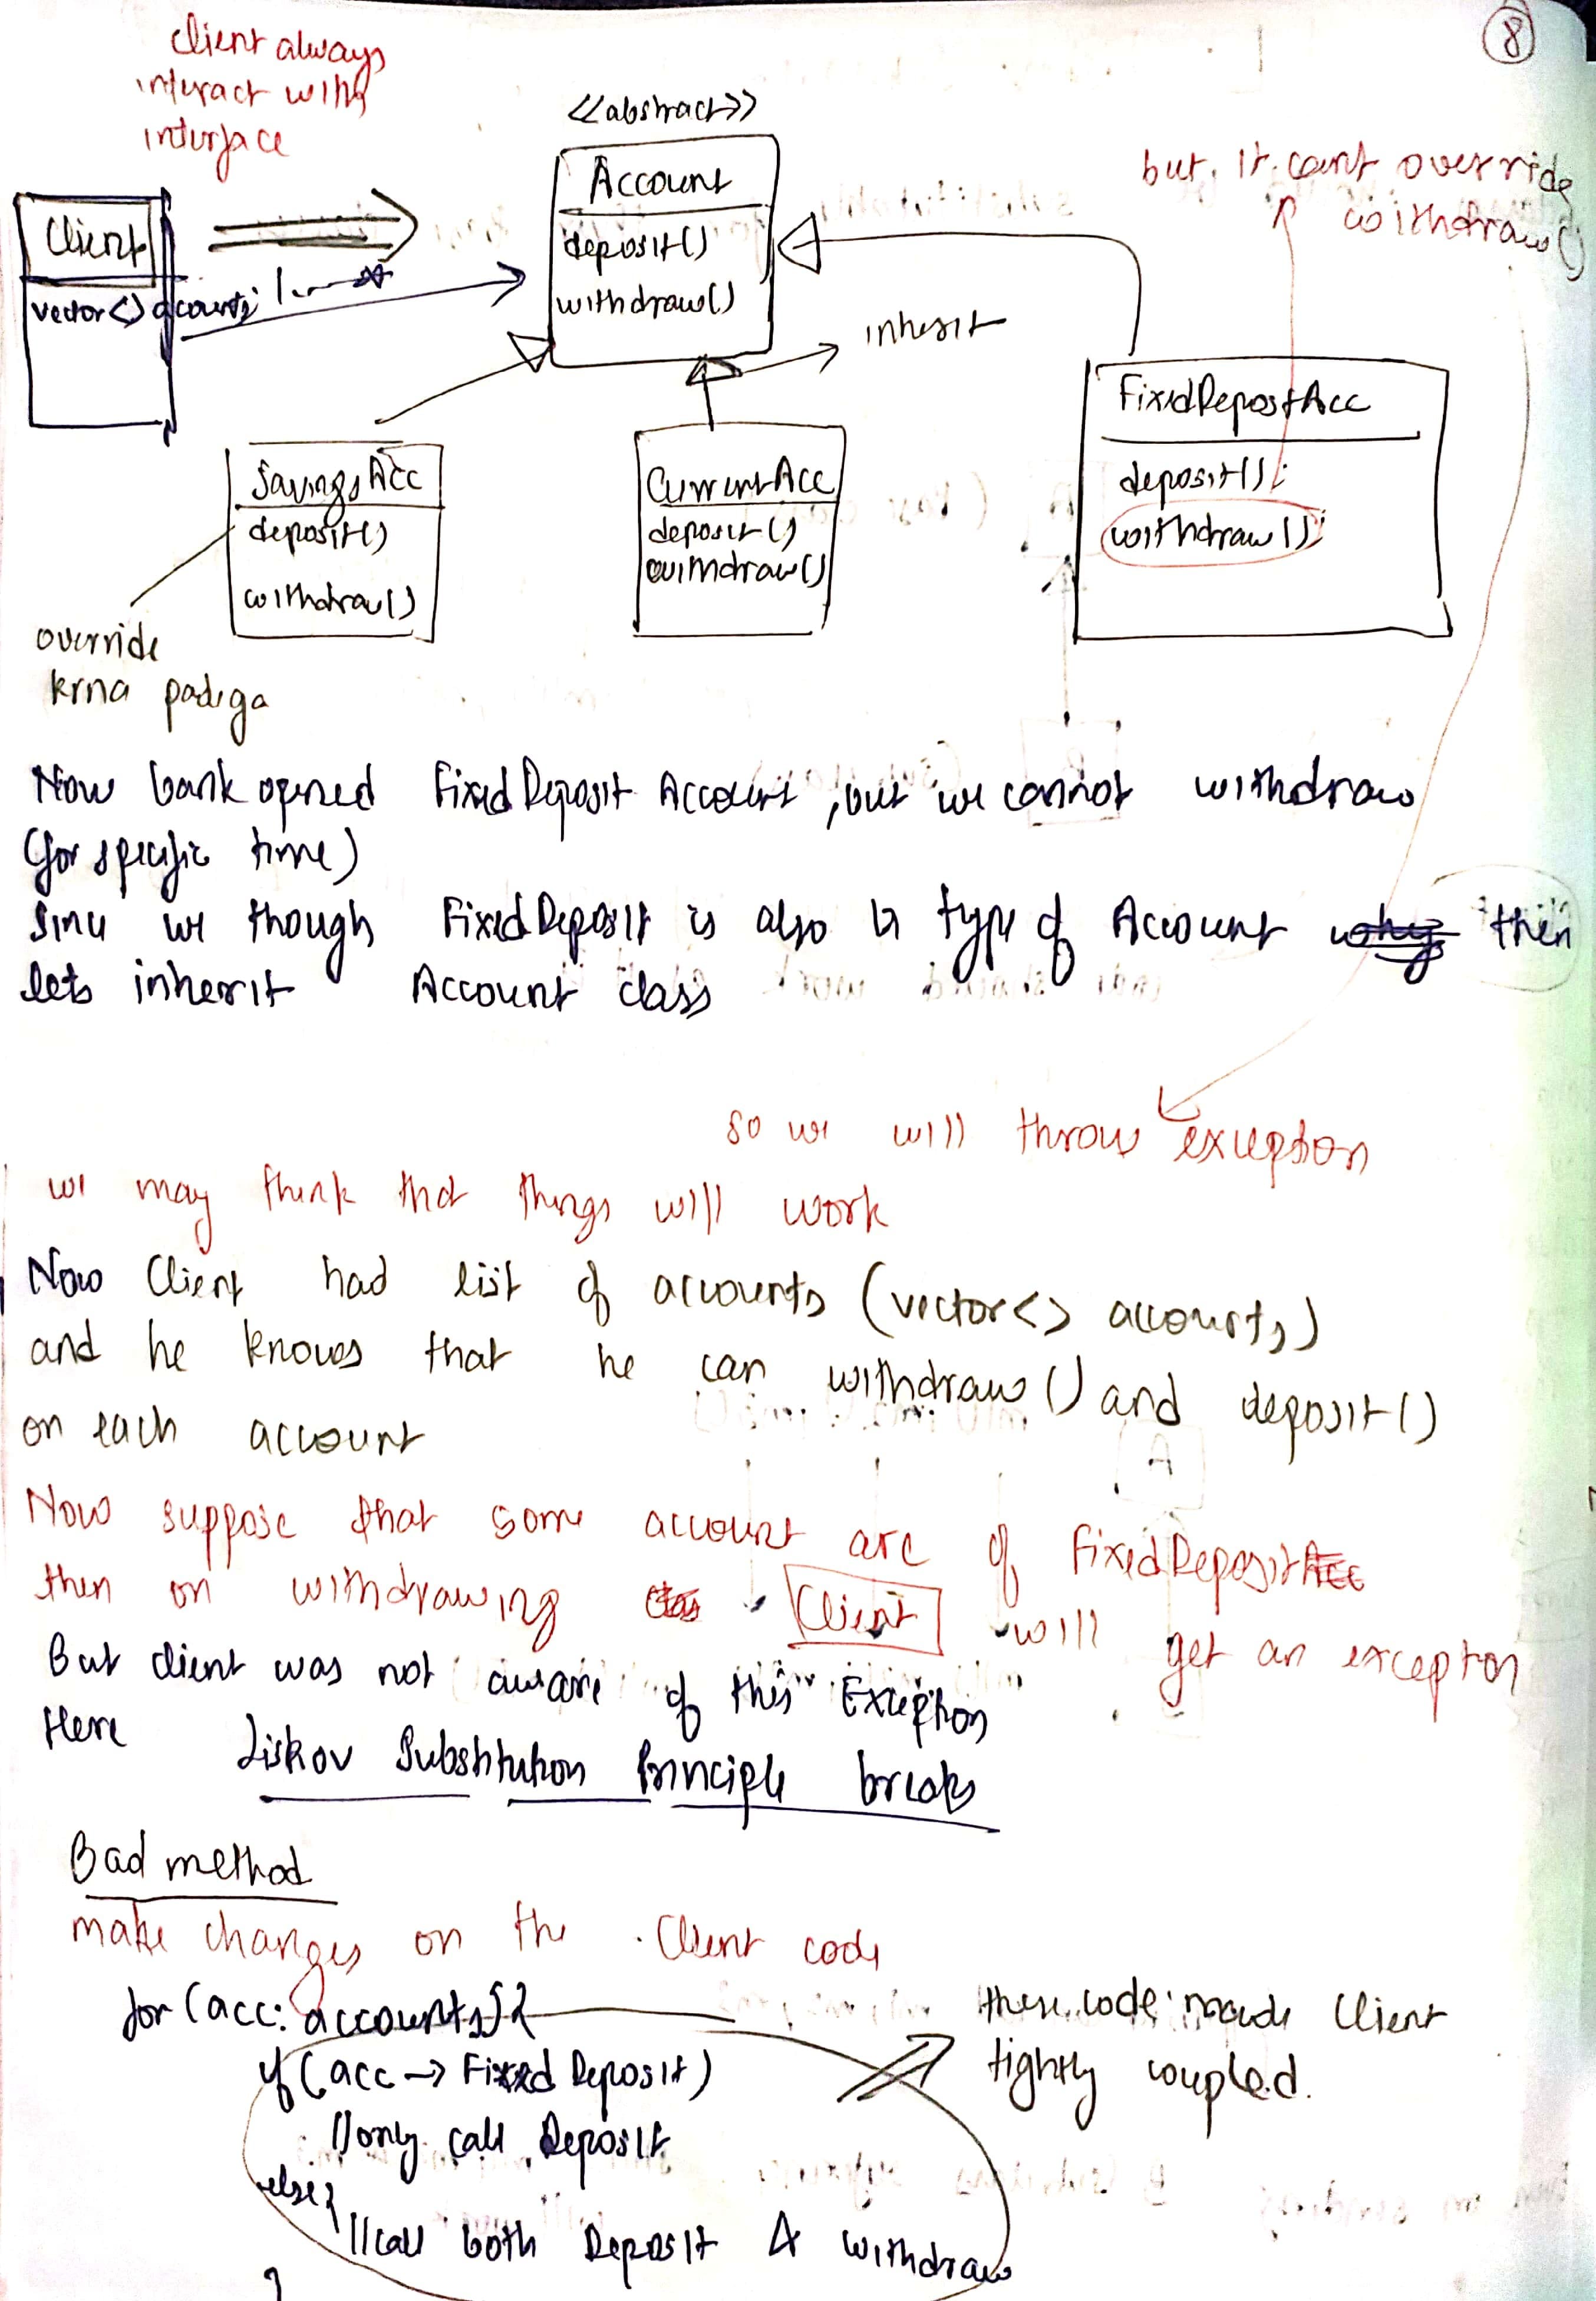 8
Client always
interact with
interface
<<abstract>>
Account
deposit()
withdraw()
but it can't override
withdraw()
Client
vector<> accounts;
1...*
inherit
FixedDepostAcc
deposit();
withdraw();
SavingsAcc
deposit()
withdraw()
CurrentAcc
deposit()
withdraw()
override
krna padega
Now bank opened FixedDeposit Account, but we cannot withdraw
(for specific time)
Since we though FixedDeposit is also a type of Account then
lets inherit Account class
so we will throw exception
we may think that things will work
Now Client had list of accounts (vector<> accounts)
and he knows that he can withdraw() and deposit()
on each account
Now suppose that some account are of FixedDepositAcc
then on withdrawing Client will get an exception
But client was not aware of this "Exception"
Here Liskov Substitution Principle breaks
Bad method
make changes on the Client code
for (acc: accounts){
if (acc -> Fixed Deposit)
//only call Deposit
else{
//call both Deposit & withdraw
}
these code made Client
tightly coupled.